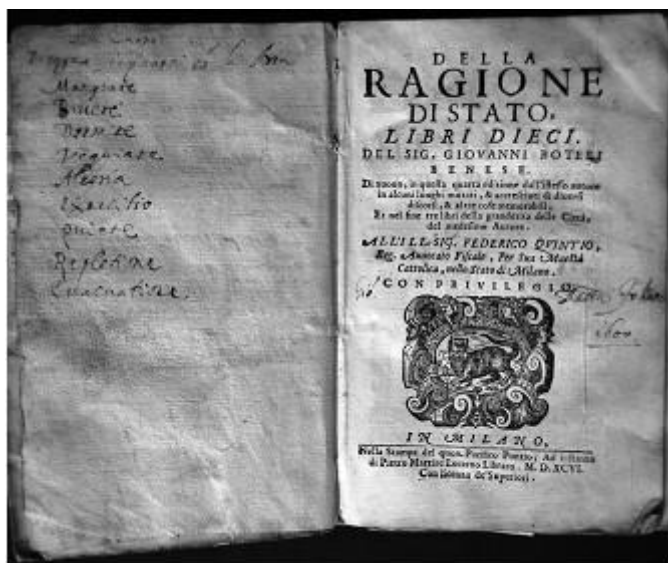 Mangiare
Bevere
Dormire
Exercitio
quiete
Repletione
DELLA
RAGIONE
DI STATO,
LIBRI DIECI.
DEL SIG. GIOVANNI BOTERI
BENESE.
Di nuovo, in questa quarta editione dall'istesso autore
in alcuni luoghi mutati, & accresciuti di diversi
discorsi, & altre cose memorabili.
Et nel fine tre libri della grandezza delle Città,
del medesimo Autore.
ALL'ILL. SIG. FEDERICO QVINTIO,
Reg. Avvocato Fiscale, Per Sua Maestà
Cattolica, nello Stato di Milano.
CON PRIVILEGIO.
1600
IN MILANO,
Nella Stampa del quon. Pacifico Pontio; Ad instanza
di Pietro Martire Locarno Libraro. M. D. XCVI.
Con licenza de' Superiori.